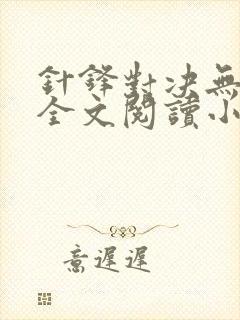 針鋒對决無
全文閱讀小
意遲遲